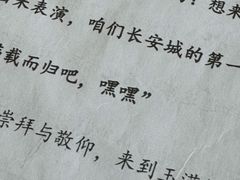 ？想来
来表演，咱们长安城的第一
载而归吧，嘿嘿”
崇拜与敬仰，来到玉满